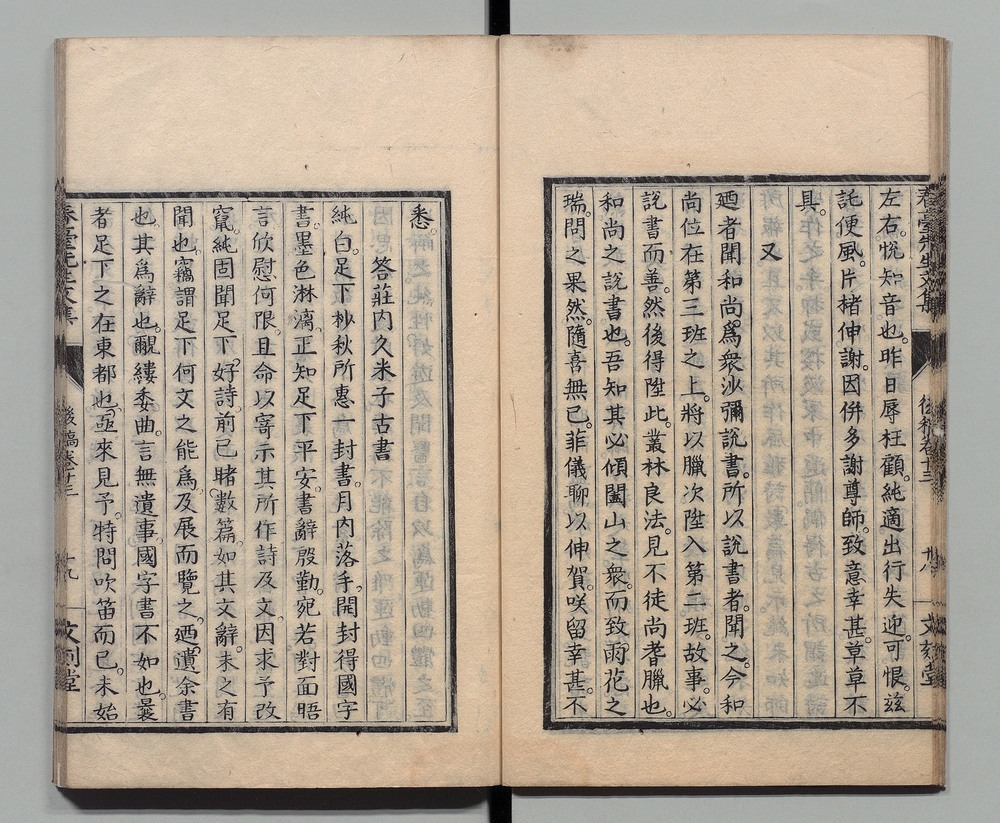 左右。悅知音也。昨日辱枉顧。純適出行失迎。可恨。茲
託便風。片楮伸謝。因併多謝尊師。致意幸甚。草草不
具。
又
廼者聞和尚爲衆沙彌說書。所以說書者。聞之。今和
尚位在第三班之上。將以臘次陞入第二班。故事必
說書而善。然後得陞此。叢林良法。見不徒尚耆臘也。
和尚之說書也。吾知其必傾闔山之衆。而致雨花之
瑞。問之果然。隨喜無已。菲儀聊以伸賀。咲留幸甚。不
春臺先生文集
後稿卷十三
十八
文刻堂
悉。
答莊內久米子古書
純白。足下杪秋所惠一封書。月內落手。開封得國字
書。墨色淋漓。正知足下平安。書辭殷勤。宛若對面晤
言。欣慰何限。且命以寄示其所作詩及文。因求予改
竄。純固聞足下好詩。前已睹數篇。如其文辭。未之有
聞也。竊謂足下何文之能爲。及展而覽之。廼遺余書
也。其爲辭也。覼縷委曲。言無遺事。國字書不如也。曩
者足下之在東都也。亟來見予。特問吹笛而已。未始
春臺先生文集
後稿卷十三
十九
文刻堂